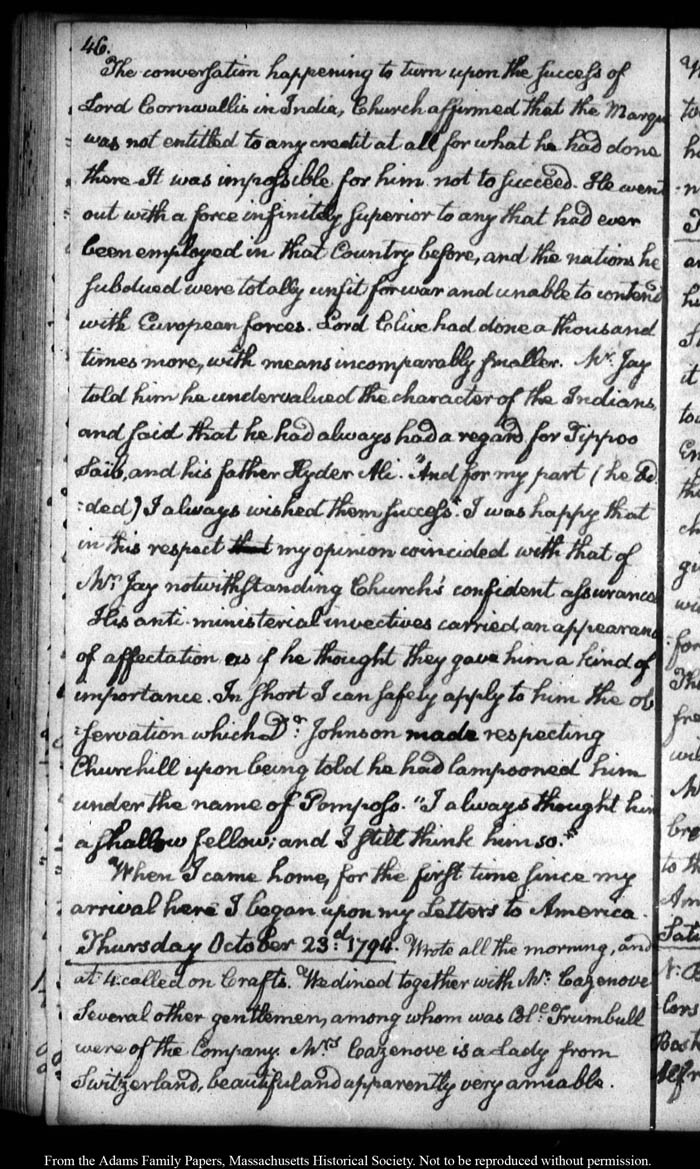 46.
The conversation happening to turn upon the success of
Lord Cornwallis in India, Church affirmed that the Marqu
was not entitled to any credit at all for what he had done
there. It was impossible for him not to succeed. He went
out with a force infinitely superior to any that had ever
been employed in that Country before, and the nations he
subdued were totally unfit for war and unable to contend
with European forces. Lord Clive had done a thousand
times more, with means incomparably smaller. Mr. Jay
told him he undervalued the character of the Indians,
and said that he had always had a regard for Tippoo
Saib, and his father Hyder Ali. "And for my part (he ad
:ded) I always wished them success". I was happy that
in this respect that my opinion coincided with that of
Mr. Jay notwithstanding Church's confident assurance
His anti-ministerial invectives carried an appearance
of affectation as if he thought they gave him a kind of
importance. In short I can safely apply to him the ob
:servation which Dr. Johnson made respecting
Churchill upon being told he had lampooned him
under the name of Pomposo. "I always thought him
a shallow fellow; and I still think him so."
When I came home, for the first time since my
arrival here I began upon my Letters to America.
Thursday October 23.d 1794. Wrote all the morning, and
at 4. called on Crafts. We dined together with Mr. Cazenove
Several other gentlemen, among whom was Coll. Trumbull
were of the Company. Mrs. Cazenove is a Lady from
Switzerland, beautiful and apparently very amiable.
From the Adams Family Papers, Massachusetts Historical Society. Not to be reproduced without permission.